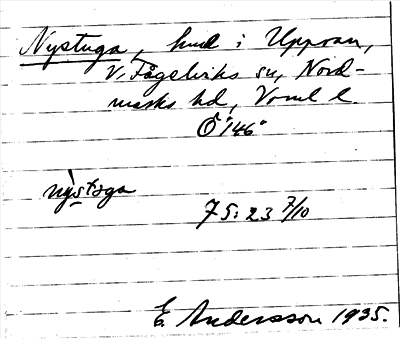 Nystuga, hmd i Upperan,
V. Fågelviks sn, Nord-
marks hd, Vrml l.
Ö 146
nystoga
75: 23 7/10
E. Andersson 1935.